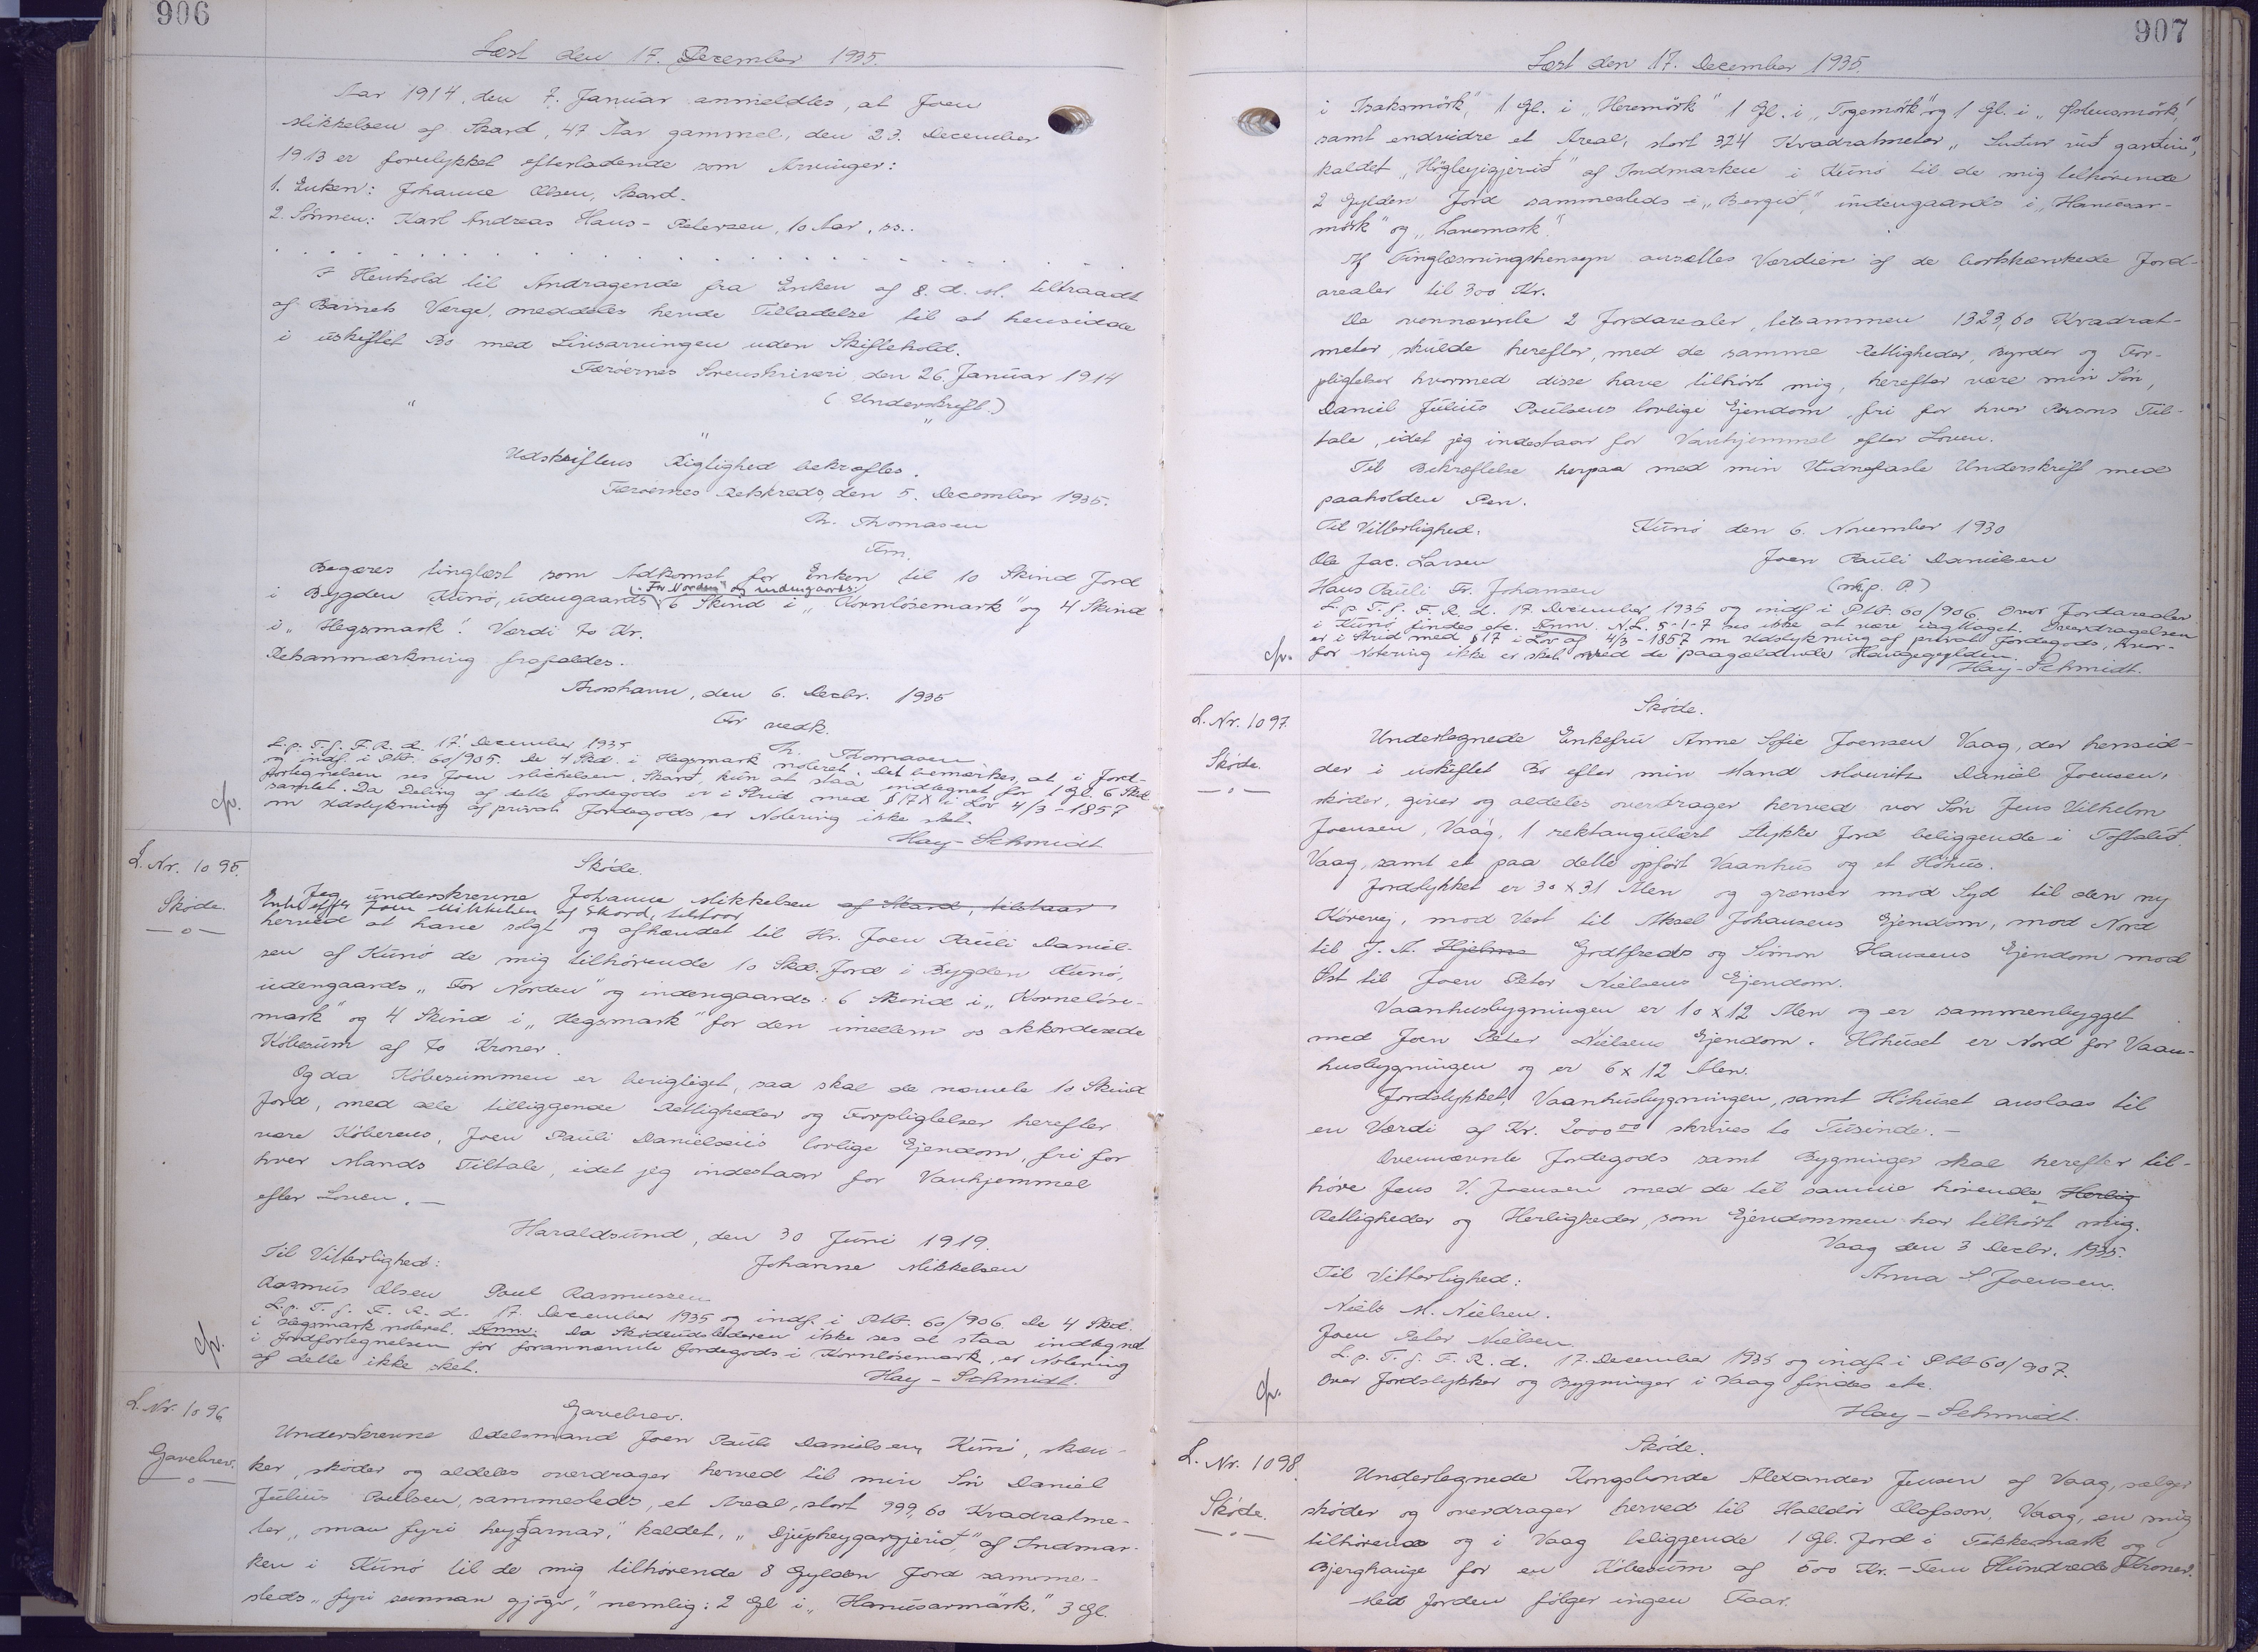 906
Læst den 17. December 1935.
Aar 1914, den 7. Januar anmeldtes, at Joen
Mikkelsen af Skard, 47 Aar gammel, den 23. December
1913 er forulykket efterladende som Arvinger:
1. Enken: Johanne Olsen, Skard.
2. Sønnen: Karl Andreas Hans-Petersen, 10 Aar, ss..
I Henhold til Andragende fra Enken af 8. d. M. tiltraadt
af Barnets Værge, meddeles hende Tilladelse til at hensidde
i uskiftet Bo med Livsarvingen uden Skiftehold.
Færøernes Sorenskriveri, den 26. Januar 1914
(Underskrift.)
Udskriftens Rigtighed bekræftes.
Færøernes Retskreds, den 5. December 1935.
Th. Thomasen
Fm.
Begæres tinglæst som Adkomst for Enken til 10 Skind Jord
("For Norden" og indengaards:
i Bygden Kunø, udengaards 6 Skind i "Kornlösemark" og 4 Skind
i "Hegsmark". Værdi 70 Kr.
Retsanmærkning frafaldes.
Thorshavn, den 6. Decbr. 1935
For vedk.
Th. Thomasen
L.p. T. f. F. R. d. 17. December 1935
og indf. i Pttb. 60/905. De 4 Skd. i Hegsmark noteret. Det bemærkes, at i Jord-
fortegnelsen ses Joen Mickelsen, Skard, kun at staa indtegnet for 1 Gl. 6 Skd.
samlet. Da Deling af dette Jordegods er i Strid med § 17 i Lov 4/3-1857
om Udstykning af privat Jordegods, er Notering ikke sket.
Hay-Schmidt
L. Nr. 1095.
Skøde.
Skøde.
Jeg underskrevne Johanne Mikkelsen af Skard, tilstaar
Enke efter Joen Mikkelsen af Skard, tilstaar
herved at have solgt og afhændet til Hr. Joen Pauli Daniel-
sen af Kunø de mig tilhørende 10 Skd. Jord i Bygden Kunø,
udengaards "For Norden" og indengaards: 6 Skind i "Kornelöse-
mark" og 4 Skind i "Hegsmark" for den imellem os akkorderede
Købesum af 70 Kroner.
Og da Købesummen er berigtiget, saa skal de nævnte 10 Skind
Jord, med alle tilliggende Rettigheder og Forpligtelser herefter
være Køberens, Joen Pauli Danielsens lovlige Ejendom, fri for
hver Mands Tiltale, idet jeg indestaar for Vanhjemmel
efter Loven.—
Haraldsund, den 30 Juni 1919.
Til Vitterlighed:
Johanne Mikkelsen
Rasmus Olsen Poul Rasmussen
L.p. T. f. F. R. d. 17. December 1935 og indf. i Pttb. 60/906. De 4 Skd.
i Hegsmark noteret. Anm: Da Skødeudstederen ikke ses at staa indtegnet
i Jordfortegnelsen for forannævnte Jordegods i Kornlösemark, er Notering
af dette ikke sket.
Hay-Schmidt.
L. Nr. 1096
Gavebrev.
Gavebrev.
Underskrevne Odelsmand Joen Pauli Danielsen, Kunø, skæn-
ker, skøder og aldeles overdrager herved til min Søn Daniel
Julius Poulsen, sammesteds, et Areal, stort 999,60 Kvadratme-
ter, "oman fyri heygjarnar," kaldet, "Djúpheygargjerið," af Indmar-
ken i Kunø til de mig tilhørende 8 Gylden Jord samme-
steds "fyri sunnan gjógv," nemlig: 2 Gl i "Hanusarmørk," 3 Gl.
907
Læst den 17. December 1935.
i "Isaksmörk," 1 Gl. i "Heremörk" 1 Gl. i "Togemörk" og 1 Gl. i "Østensmörk",
samt endvidre et Areal, stort 324 Kvadratmeter "Suður við garðin",
kaldet "Högleyigjerið" af Indmarken i Kunø til de mig tilhørende
2 Gylden Jord sammesteds i "Bergið," indengaards i "Hanusar-
mörk" og "Lavemark".
Af Tinglæsningshensyn ansættes Værdien af de bortskænkede Jord-
arealer til 300 Kr.
De ovennævnte 2 Jordarealer, tilsammen 1323,60 Kvadrat-
meter, skulde herefter, med de samme Rettigheder, Byrder og For-
pligtelser hvormed disse have tilhørt mig, herefter være min Søn,
Daniel Julius Poulsens lovlige Ejendom, fri for hver Persons Til-
tale, idet jeg indestaar for Vanhjemmel efter Loven.
Til Bekræftelse herpaa med min Vidnefaste Underskrift med
paaholden Pen.
Til Vitterlighed. Kunø den 6. November 1930
Ole Jac. Larsen Joen Pauli Danielsen
Hans Pauli Fr. Johansen (m.p. P.)
L.p. T. f. F. R. d. 17. December 1935 og indf. i Pttb. 60/906. Over Jordarealer
i Kunø findes etc. Anm. N.L. 5-1-7 ses ikke at være iagttaget. Overdragelsen
er i Strid med § 17 i Lov af 4/3-1857 om Udstykning af privat Jordegods, hvor-
for Notering ikke er sket med de paagældende Haugegylden.
Hay-Schmidt.
L. Nr. 1097.
Skøde.
Skøde.
Undertegnede Enkefru Anne Sofie Joensen Vaag, der hensid-
der i uskiftet Bo efter min Mand Mouritz Daniel Joensen,
skøder, giver og aldeles overdrager herved vor Søn Jens Vilhelm
Joensen, Vaag, 1 rektangulært Stykke Jord beliggende i Toftalið.
Vaag, samt et paa dette opført Vaanhus og et Høhus.
Jordstykket er 30 x 31 Alen og grænser mod Syd til den ny
Kørevej, mod Vest til Aksel Johansens Ejendom, mod Nord
til J. A. Hjelms Godtfreds og Simon Hansens Ejendom mod
Øst til Joen Peter Nielsens Ejendom.
Vaanhusbygningen er 10 x 12 Alen og er sammenbygget
med Joen Peter Nielsens Ejendom. Høhuset er Nord for Vaan-
husbygningen og er 6 x 12 Alen.
Jordstykket, Vaanhusbygningen, samt Høhuset anslaas til
en Værdi af Kr. 2000 00 skrives to Tusinde.—
Ovennævnte Jordegods samt Bygninger skal herefter til-
høre Jens V. Joensen med de til samme hørende Herlig
Rettigheder og Herligheder, som Ejendommen har tilhørt mig.
Vaag den 3 Decbr. 1935.
Til Vitterlighed: Anna S Joensen.
Niels M. Nielsen.
Joen Peter Nielsen.
L.p. T. f. F. R. d. 17. December 1935 og indf. i Pttb 60/907.
Over Jordstykker og Bygninger i Vaag findes etc.
Hay-Schmidt.
L. Nr. 1098.
Skøde.
Skøde.
Undertegnede Kongsbonde Alexander Jensen af Vaag, sælger
skøder og overdrager herved til Halldór Olafsson, Vaag, en mig
tilhørende og i Vaag beliggende 1 Gl. Jord i Tekkemark og
Bjerghauge for en Købesum af 500 Kr. - Fem Hundrede Kroner.
Med Jorden følger ingen Faar.